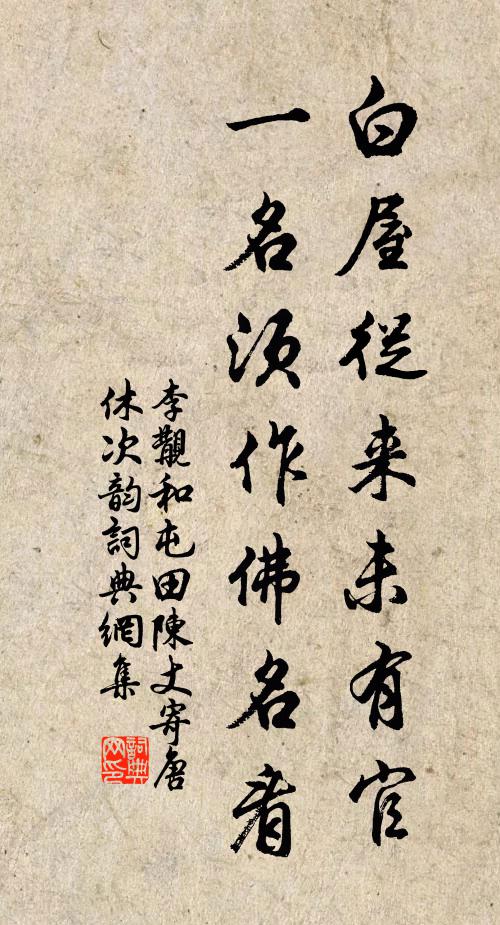 白屋從来未有官
一名須作佛名看
李觀和屯田陳丈寄詹
休次韵詞典網集
詞典
网印